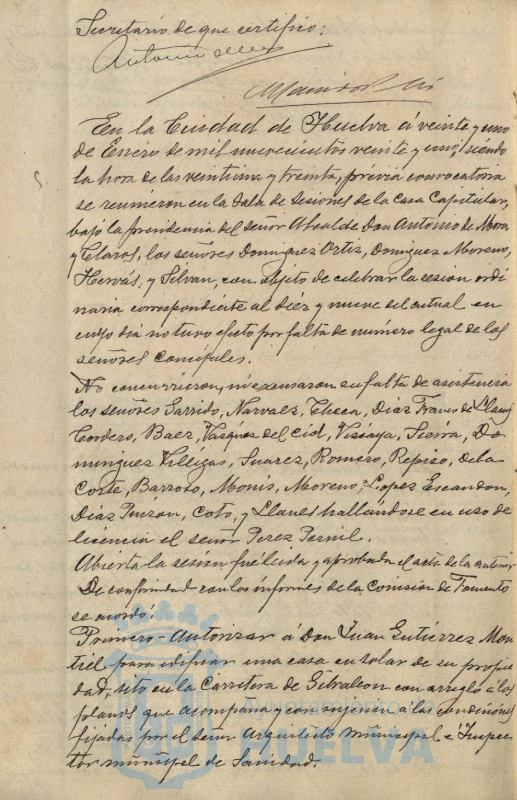 Secretario de que certifico:
Antonio de Mora
En la Ciudad de Huelva á veinte y uno
de Enero de mil novecientos veinte y uno, siendo
la hora de las veintiuna y treinta, previa convocatoria
se reunieron en la Sala de Sesiones de la Casa Capitular,
bajo la presidencia del señor Alcalde Don Antonio de Mora
y Claros, los señores Dominguez Ortiz, Dominguez Moreno,
Hervás, y Silvan, con objeto de celebrar la sesion ordi
naria correspondiente al diez y nueve del actual en
cuyo dia no tuvo efecto por falta de número legal de los
señores Concejales.
No concurrieron, ni excusaron su falta de asistencia
los señores Garrido, Narvaez, Checa, Diaz Franco de Llanos
Cordero, Baez, Vazquez del Cid, Vizcaya, Sierra, Do
minguez Villegas, Suarez, Romero, Repiso, de la
Corte, Barroso, Monis, Moreno, Lopez Escandon,
Diaz Pinzon, Coto, y Llanes hallándose en uso de
licencia el señor Perez Pernil.
Abierta la sesión fué leida y aprobada el acta de la anterior
De conformidad con los informes de la Comision de Fomento
se acordó:
Primero - Autorizar á Don Juan Gutiérrez Mon
tiel para edificar una casa en solar de su propie
dad, sito en la Carretera de Gibraleon con arreglo á los
planos que acompaña y con sujecion á las condiciones
fijadas por el señor Arquitecto municipal é Inspec
tor municipal de Sanidad.
HUELVA